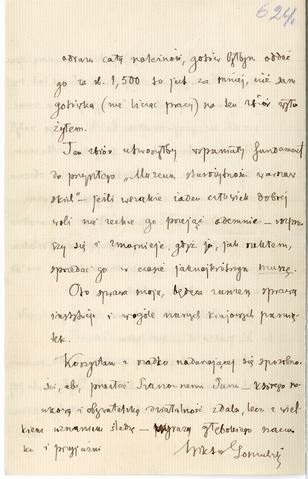 624
odrazu całą należność, gotów byłbym oddać
go za rb. 1,500 to jest za mniej, niż sam
gotówką (nie licząc pracy) na ten zbiór wyło
żyłem.
Ten zbiór utworzyłby wspaniały fundament
do przyszłego „Muzeum starożytności warszaw
skich" – jeśli wszakże żaden człowiek dobrej
woli nie zechce go przejąć odemnie – rozpro
szy się i zmarnieje, gdyż ja, jak rzekłem,
sprzedać go w czasie jaknajkrótszym muszę.
Oto sprawa moja, będąca zarazem sprawą
instytucji i wogóle naszych krajowych pamią
tek.
Korzystam z rzadko nadarzającej się sposobno
ści, aby przesłać Szanownemu Panu – którego na
ukową i obywatelską działalność zdala, lecz z wiel
kiem uznaniem śledzę – wyrazy głębokiego szacun
ku i przyjaźni
Wiktor Gomulicki